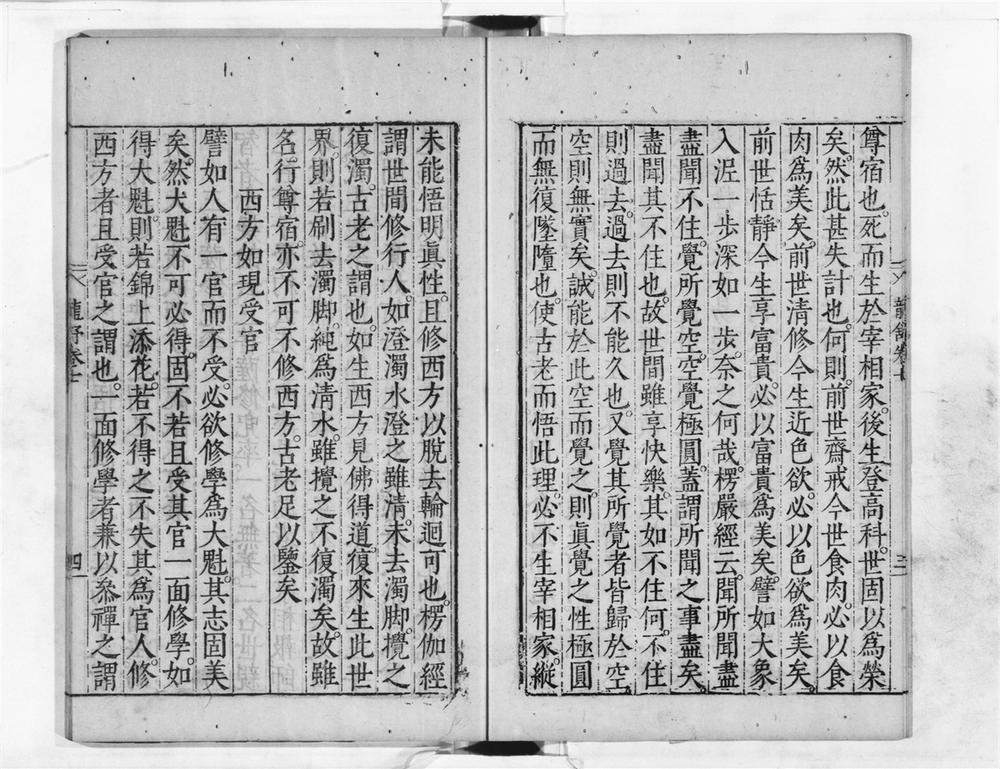 尊宿也。死而生於宰相家。後生登高科。世固以爲榮
矣。然此甚失計也。何則。前世齋戒。今世食肉。必以食
肉爲美矣。前世清修。今生近色欲。必以色欲爲美矣。
前世恬靜。今生享富貴。必以富貴爲美矣。譬如大象
入泥。一步深如一步。奈之何哉。楞嚴經云。聞所聞盡
盡聞不住。覺所覺空。空覺極圓。蓋謂所聞之事盡矣。
盡聞其不住也。故世間雖享快樂。其如不住何。不住
則過去。過去則不能久也。又覺其所覺者皆歸於空。
空則無實矣。誠能於此空而覺之。則眞覺之性極圓
而無復墜墮也。使古老而悟此理。必不生宰相家。縱
三
未能悟明眞性。且修西方以脫去輪迴可也。楞伽經
謂世間修行人。如澄濁水。澄之雖清。未去濁脚。攪之
復濁。古老之謂也。如生西方見佛得道。復來生此世
界。則若刷去濁脚。純爲清水。雖攪之不復濁矣。故雖
名行尊宿。亦不可不修西方。古老足以鑒矣
西方如現受官
譬如人有一官而不受。必欲修學爲大魁。其志固美
矣。然大魁不可必得。固不若且受其官。一面修學。如
得大魁。則若錦上添花。若不得之。不失其爲官人。修
西方者。且受官之謂也。一面修學者。兼以叅禪之謂
四